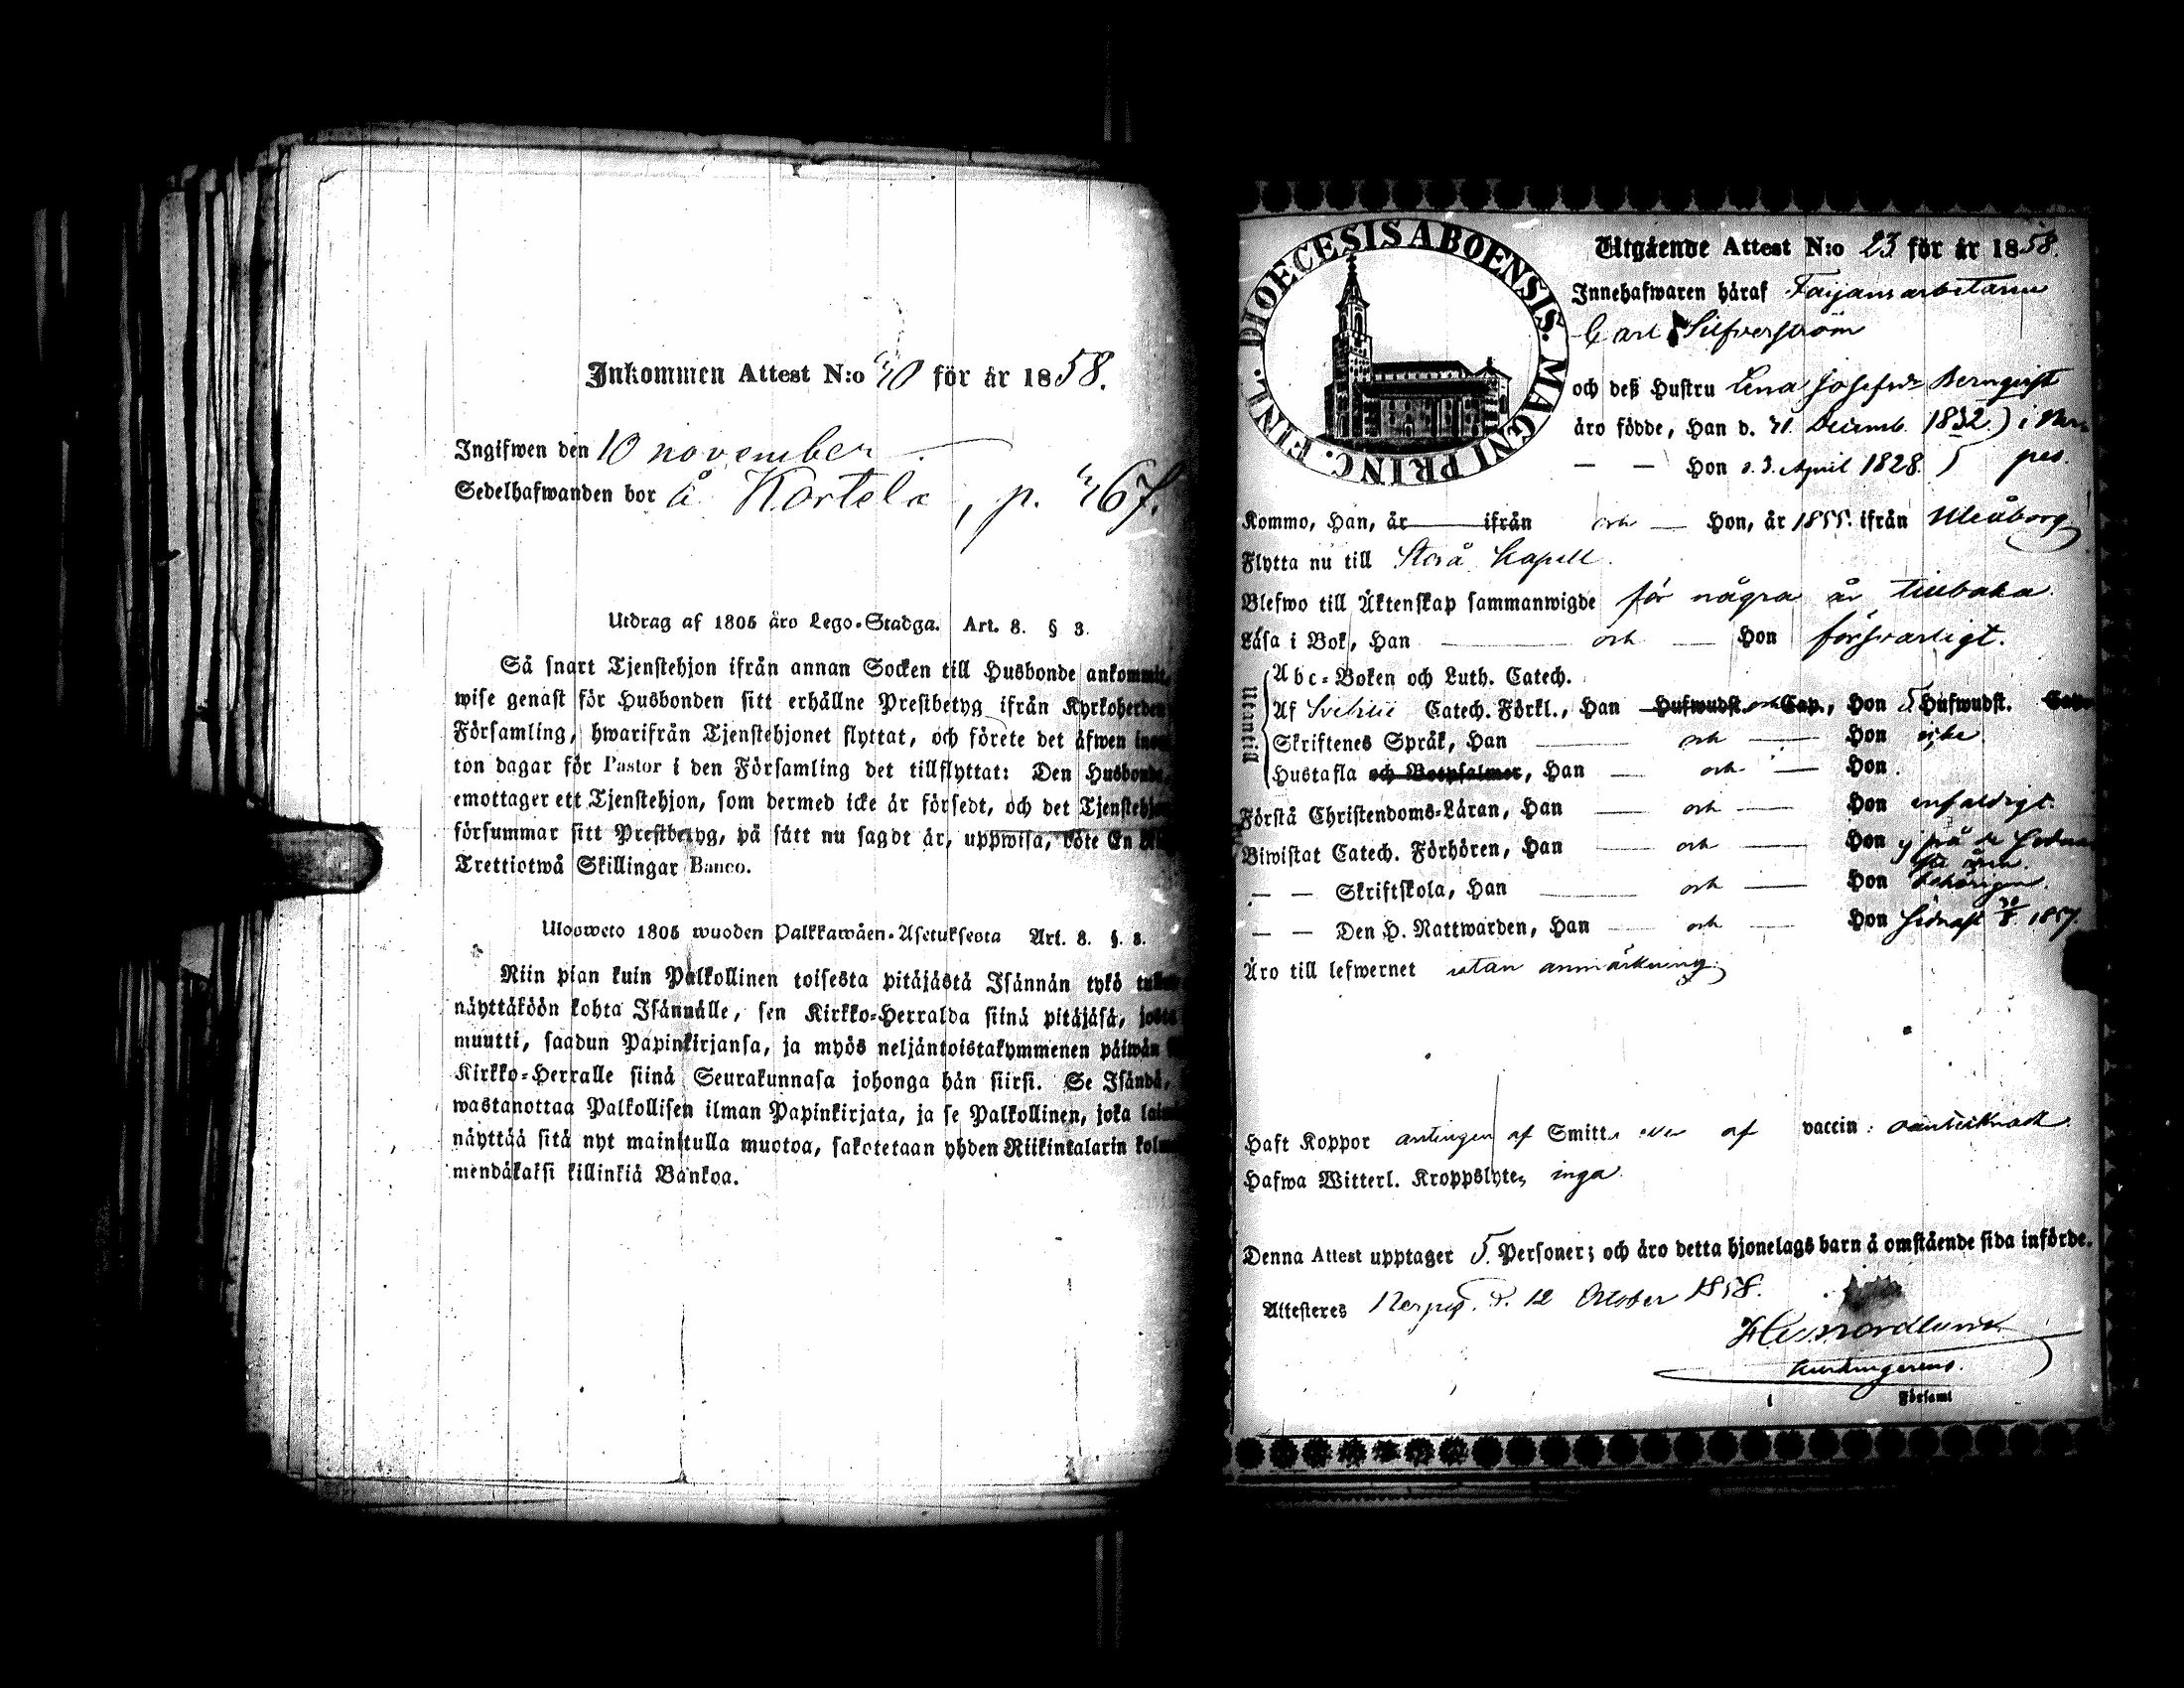 Inkommen Attest N:o 40 för år 1858.
Ingifwen den 10 november
Sedelhafwanden bor å Kartela, p. 467.
Utdrag af 1805 åro Lego-Stadga. Art. 8. § 3.
Så snart Tjenstehjon ifrån annan Socken till Husbonde ankommit,
wise genast för Husbonden sitt erhållne Prestbetyg ifrån Kyrkoherden
Församling, hwarifrån Tjenstehjonet flyttat, och förete det äfwen
ton dagar för Pastor i den Församling det tillflyttat: Den Husbonde,
emottager ett Tjenstehjon, som dermed icke är försedt, och det
försummar sitt Prestbetyg, på sätt nu sagdt är, uppwisa, böte En
Trettiotwå Skillingar Banco.
Ulosweto 1805 wuoden Palkkawäen-Asetuksesta Art. 8. §. 3.
Niin pian kuin Palkollinen toisesta pitäjästä Isännän tykö
näyttäköön kohta Isännälle, sen Kirkko-Herralda siinä pitäjäsä,
muutti, saadun Papinkirjansa, ja myös neljäntoistakymmenen päiwän
Kirkko-Herralle siinä Seurakunnasa johonga hän siirsi. Se Isändä,
wastanottaa Palkollisen ilman Papinkirjata, ja se Palkollinen, joka
näyttää sitä nyt mainitulla muotoa, sakotetaan yhden Riikintalarin
mendäkaksi killinkiä Bankoa.
DIOECESIS ABOENSIS. MAGNI PRINC. FINL.
Utgående Attest N:o 23 för år 1858.
Innehafwaren häraf Fajansarbetaren
Carl Silfverström
och deß Hustru Lena Josefina Bernqvist
äro födde, Han d. 21 Decemb. 1832. i
— — Hon d. 3. April 1828.
Kommo, Han, år ifrån och — Hon, år 1855. ifrån Uleåborg
Flytta nu till Storå Kapell.
Blefwo till Äktenskap sammanwigde för några år tillbaka
Läsa i Bok, Han — och — Hon försvarligt.
Utantill
Abc-Boken och Luth. Catech.
Af Svebilii Catech. Förkl., Han Hufwudst. och Cap., Hon 5 Hufwudst.
Skriftenes Språk, Han — och — Hon icke
Hustafla och Botpsalmer, Han — och — Hon
Förstå Christendoms-Läran, Han — och — Hon enfaldigt.
Biwistat Catech. Förhören, Han — och — Hon ej på de
åren.
— — Skriftskola, Han — och — Hon behörigen.
— — Den H. Nattwarden, Han — och — Hon sednast 1857.
Äro till lefwernet utan anmärkning.
Haft Koppor antingen af Smitta eller af vaccin: oantecknadt.
Hafwa Witterl. Kroppslyten inga.
Denna Attest upptager 5. Personer; och äro detta hjonelags barn å omstående sida införde.
Attesteres d. 12 October 1858.
Nordlund
i Församl